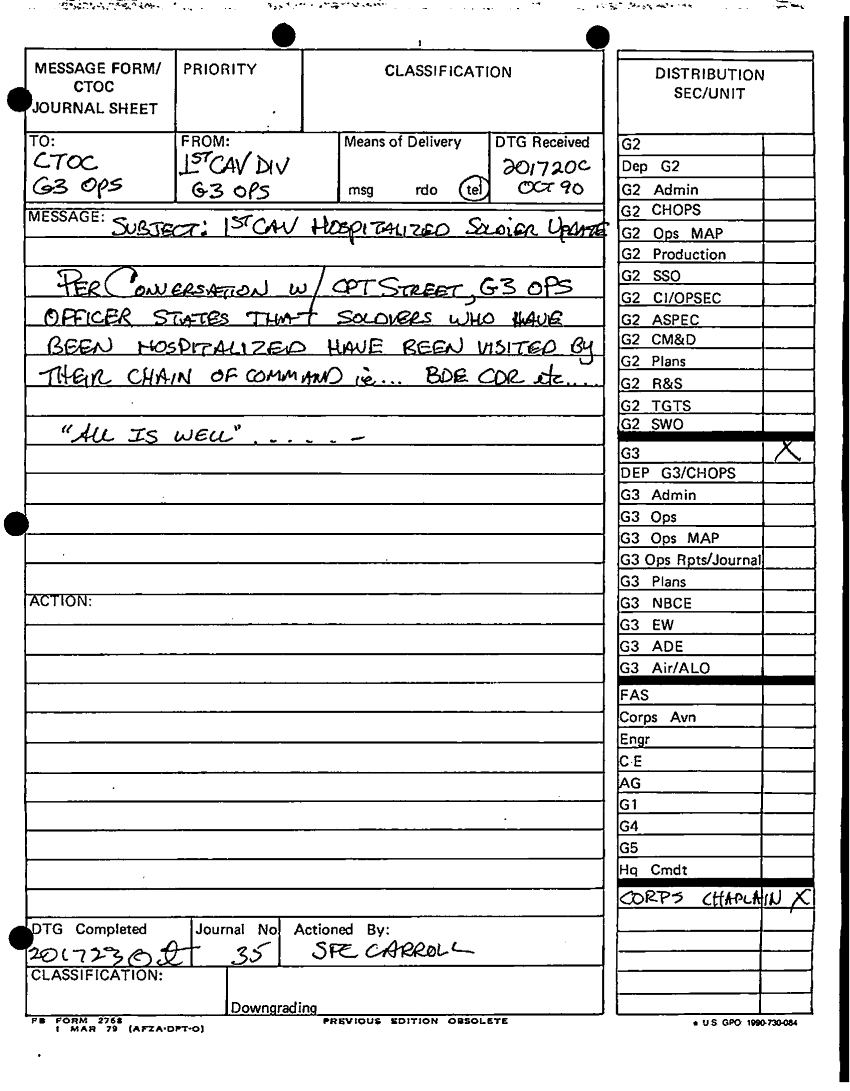 MESSAGE FORM/
CTOC
JOURNAL SHEET
PRIORITY
CLASSIFICATION
TO:
CTOC
G3 OPS
FROM:
1ST CAV DIV
G3 OPS
Means of Delivery
msg rdo tel
DTG Received
201720C
OCT 90
MESSAGE: SUBJECT: 1ST CAV HOSPITALIZED SOLDIER UPDATE
PER CONVERSATION W/ CPT STREET, G3 OPS
OFFICER STATES THAT SOLDIERS WHO HAVE
BEEN HOSPITALIZED HAVE BEEN VISITED BY
THEIR CHAIN OF COMMAND ie... BDE CDR etc....
"ALL IS WELL" . . . . . –
ACTION:
DTG Completed
201723 Oct
Journal No
35
Actioned By:
SPC CARROLL
CLASSIFICATION:
Downgrading
FB FORM 2768
1 MAR 79 (AFZA-DPT-O)
PREVIOUS EDITION OBSOLETE
DISTRIBUTION
SEC/UNIT
G2
Dep G2
G2 Admin
G2 CHOPS
G2 Ops MAP
G2 Production
G2 SSO
G2 CI/OPSEC
G2 ASPEC
G2 CM&D
G2 Plans
G2 R&S
G2 TGTS
G2 SWO
G3 X
DEP G3/CHOPS
G3 Admin
G3 Ops
G3 Ops MAP
G3 Ops Rpts/Journal
G3 Plans
G3 NBCE
G3 EW
G3 ADE
G3 Air/ALO
FAS
Corps Avn
Engr
C-E
AG
G1
G4
G5
Hq Cmdt
CORPS CHAPLAIN X
* U S GPO 1990-730-084